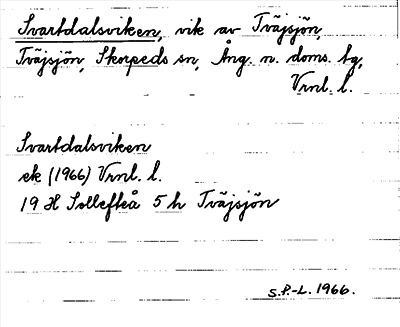 Svartdalsviken, vik av Tväjsjön,
Tväjsjön, Skorpeds sn, Ång. n. doms. tg,
Vrnl. l.
Svartdalsviken
ek (1966) Vrnl. l.
19 H Sollefteå 5 h Tväjsjön
S.P.-L. 1966.